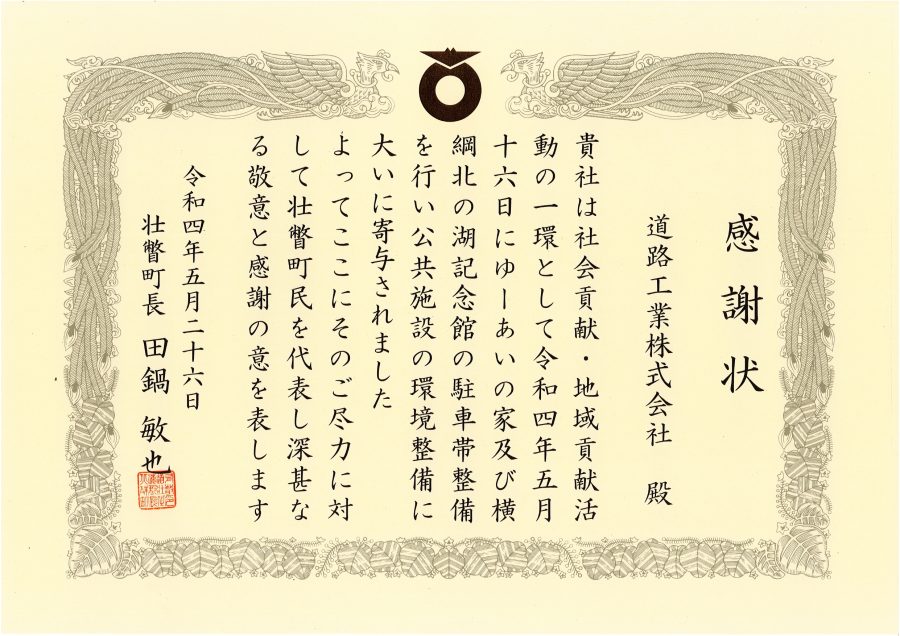 感謝状
道路工業株式会社 殿
貴社は社会貢献・地域貢献活
動の一環として令和四年五月
十六日にゆーあいの家及び横
綱北の湖記念館の駐車帯整備
を行い公共施設の環境整備に
大いに寄与されました
よってここにそのご尽力に対
して壮瞥町民を代表し深甚な
る敬意と感謝の意を表します
令和四年五月二十六日
壮瞥町長 田鍋 敏也